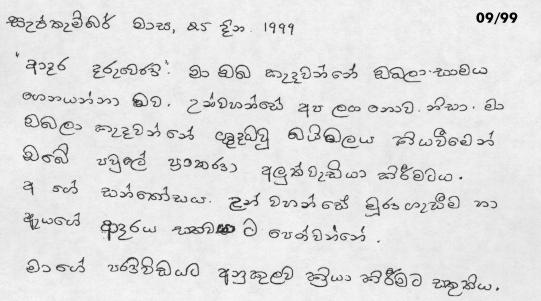 සැප්තැම්බර් මාස, 25 දින. 1999
09/99
"ආදර දරුවෙනි". මා ඔබ කැඳවන්නේ ඔබලා. සාමය
ගෙනයන්නා බව. උන්වහන්සේ අප ලඟ නොව. නිසා. මා
ඔබලා කැඳවන්නේ ශුද්ධවූ බයිබලය කියවීමෙන්
ඔබේ පවුලේ ප්‍රකෘති අලුත්වැඩියා කිරීමටය.
අ ගේ සන්තෝසය. උන් වහන්සේ මුරගැසීම හා
ඇයගේ ආදරය සත්‍යට පෙන්වන්නේ.
මාගේ පරිවිඩයට අනුකූලව ක්‍රියා කිරීමට සතුතිය.